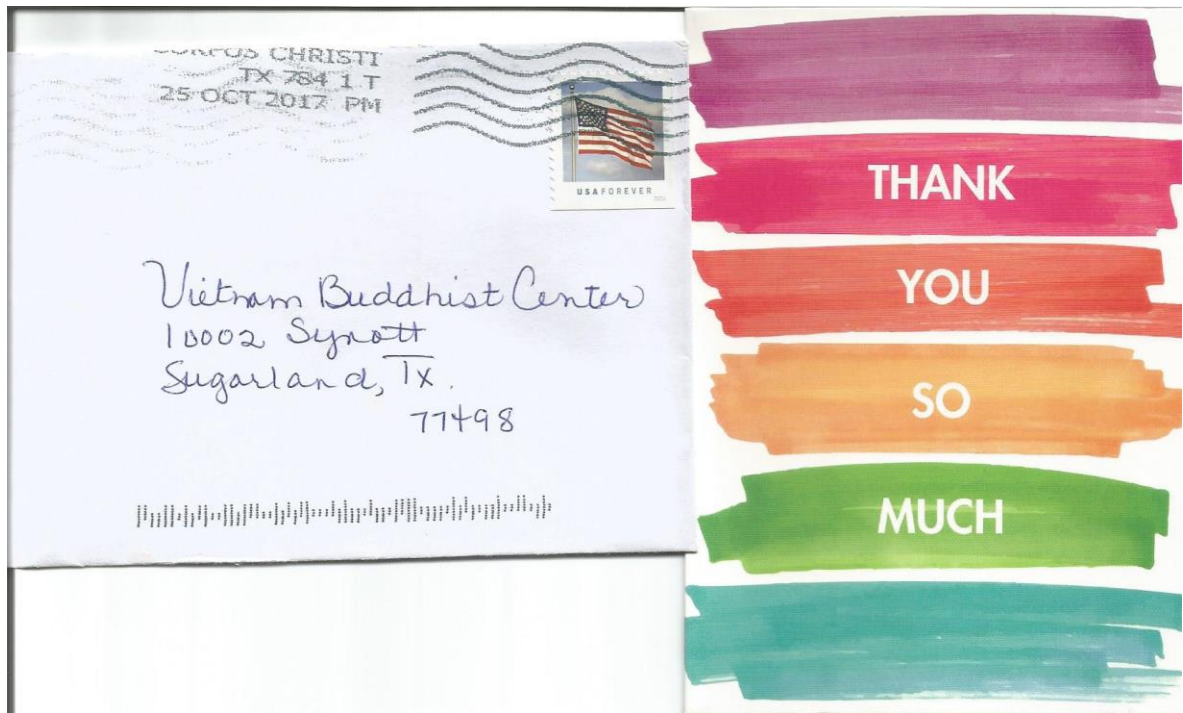 CORPUS CHRISTI
TX 784 1 T
25 OCT 2017 PM
USA FOREVER
Vietnam Buddhist Center
10002 Synott
Sugarland, Tx.
77498
THANK
YOU
SO
MUCH